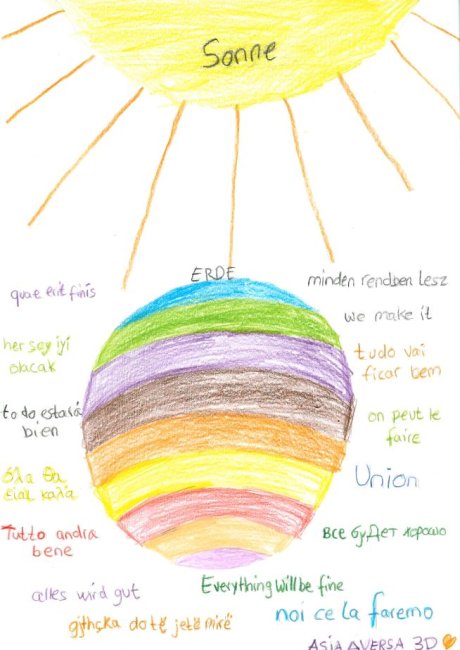 Sonne
ERDE
quae erit finis
minden rendben lesz
we make it
her şey iyi
olacak
tudo vai
ficar bem
todo estará
bien
on peut le
faire
όλα θα
είαι καλία
Union
Tutto andra
bene
все будет хорошо
alles wird gut
Everything will be fine
gjthçka do të jetë mirë
noi ce la faremo
ASIA AVERSA 3D